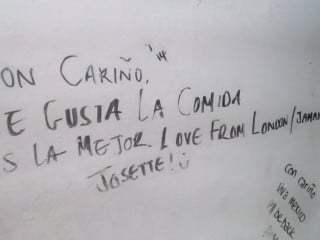 ON CARIÑO,
E GUSTA LA COMIDA
S LA MEJOR. LOVE FROM LONDON/JAMAI
JOSETTE!
con cariño
VIVA MEXICO